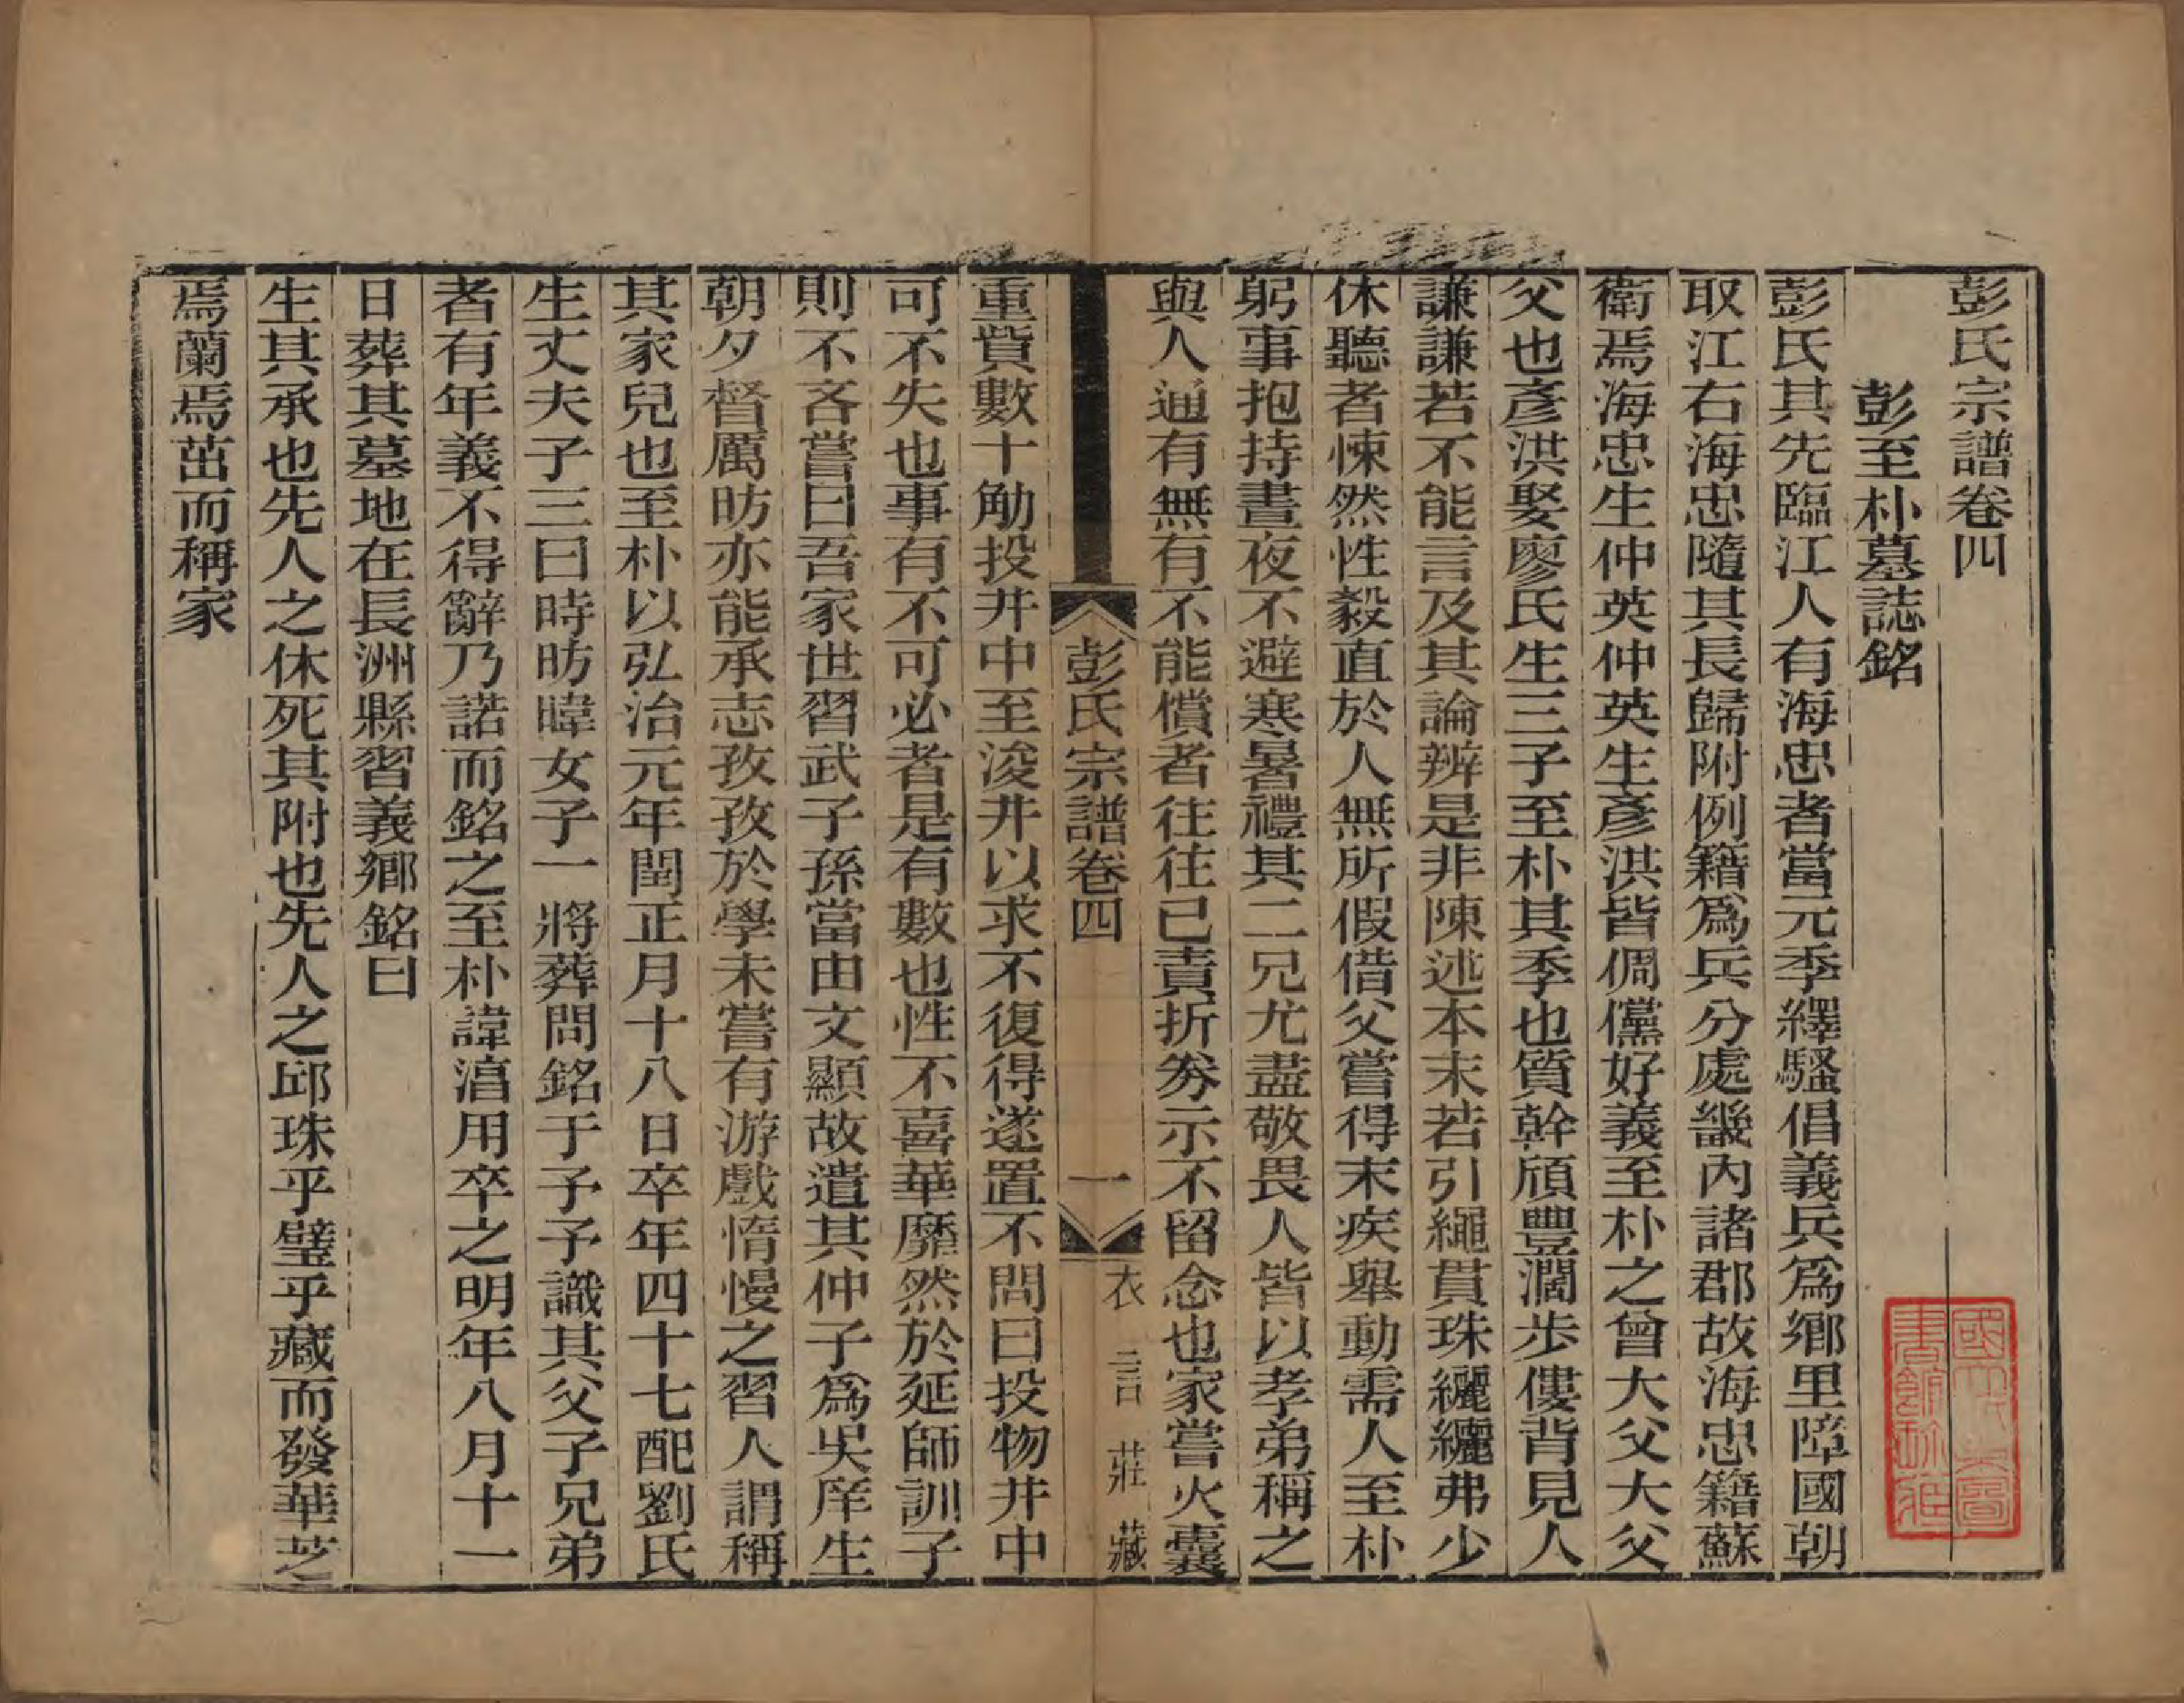 彭氏宗譜卷四
彭至朴墓誌銘
彭氏其先臨江人有海忠者當元季繹騷倡義兵為鄉里障國朝
取江右海忠隨其長歸附例籍為兵分處畿內諸郡故海忠籍蘇
衛焉海忠生仲英仲英生彥洪皆倜儻好義至朴之曾大父大父
父也彥洪娶廖氏生三子至朴其季也質幹頎豐濶步僂背見人
謙謙若不能言及其論辨是非陳述本末若引繩貫珠纚纚弗少
休聽者悚然性毅直於人無所假借父嘗得末疾舉動需人至朴
躬事抱持晝夜不避寒暑禮其二兄尤盡敬畏人皆以孝弟稱之
與人通有無有不能償者往往已責折券示不留念也家嘗火囊
彭氏宗譜卷四
一
衣言莊藏
重貲數十觔投井中至浚井以求不復得遂置不問曰投物井中
可不失也事有不可必者是有數也性不喜華靡然於延師訓子
則不吝嘗曰吾家世習武子孫當由文顯故遣其仲子為吳庠生
朝夕督厲昉亦能承志孜孜於學未嘗有游戲惰慢之習人謂稱
其家兒也至朴以弘治元年閏正月十八日卒年四十七配劉氏
生丈夫子三曰時昉暐女子一將葬問銘于予予識其父子兄弟
者有年義不得辭乃諾而銘之至朴諱淯用卒之明年八月十一
日葬其墓地在長洲縣習義鄉銘曰
生其承也先人之休死其附也先人之邱珠乎璧乎藏而發華芝
焉蘭焉茁而稱家